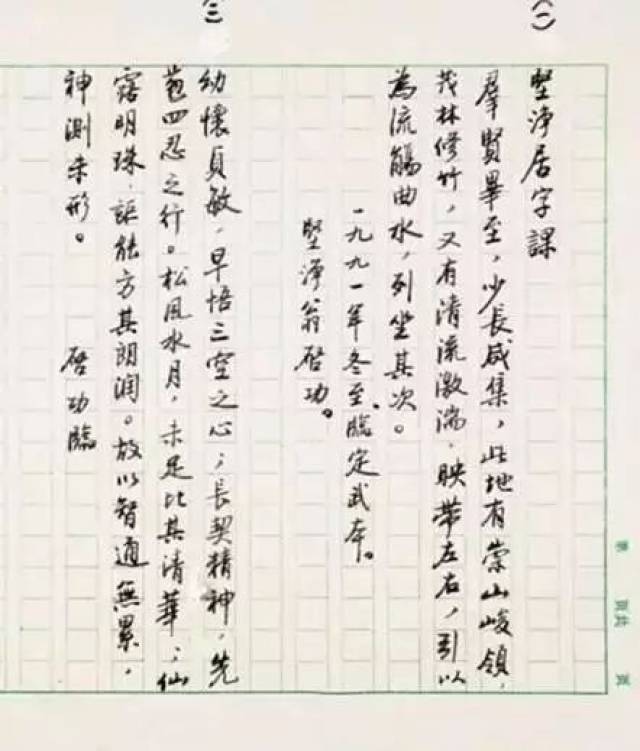 （一）
堅淨居字課
羣賢畢至，少長咸集，此地有崇山峻領，
茂林修竹，又有清流激湍，映帶左右，引以
為流觴曲水，列坐其次。
一九九一年冬至，臨定武本。
堅淨翁啓功。
（三）
幼懷貞敏，早悟三空之心；長契精神，先
苞四忍之行。松風水月，未足比其清華；仙
露明珠，詎能方其朗潤。故以智通無累，
神測未形。
啓功臨
第 頁共 頁